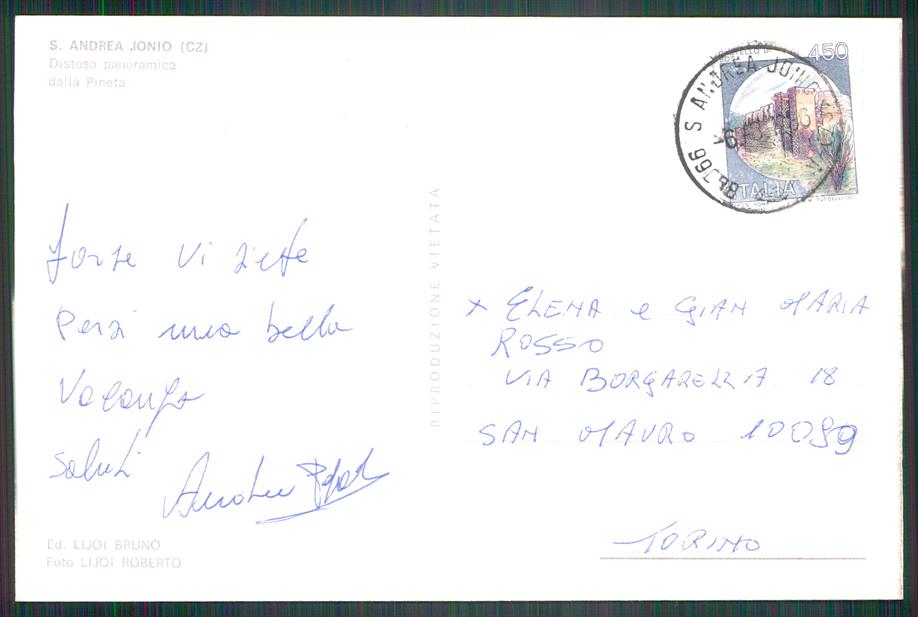 S. ANDREA JONIO (CZ)
Distesa panoramica
dalla Pineta
450
ITALIA
S. ANDREA JONIO
RIPRODUZIONE VIETATA
forse vi siete
persi una bella
vacanza
saluti
x ELENA e GIAN MARIA
ROSSO
VIA BORGARELLA 18
SAN MAURO 10099
TORINO
Ed. LIJOI BRUNO
Foto LIJOI ROBERTO